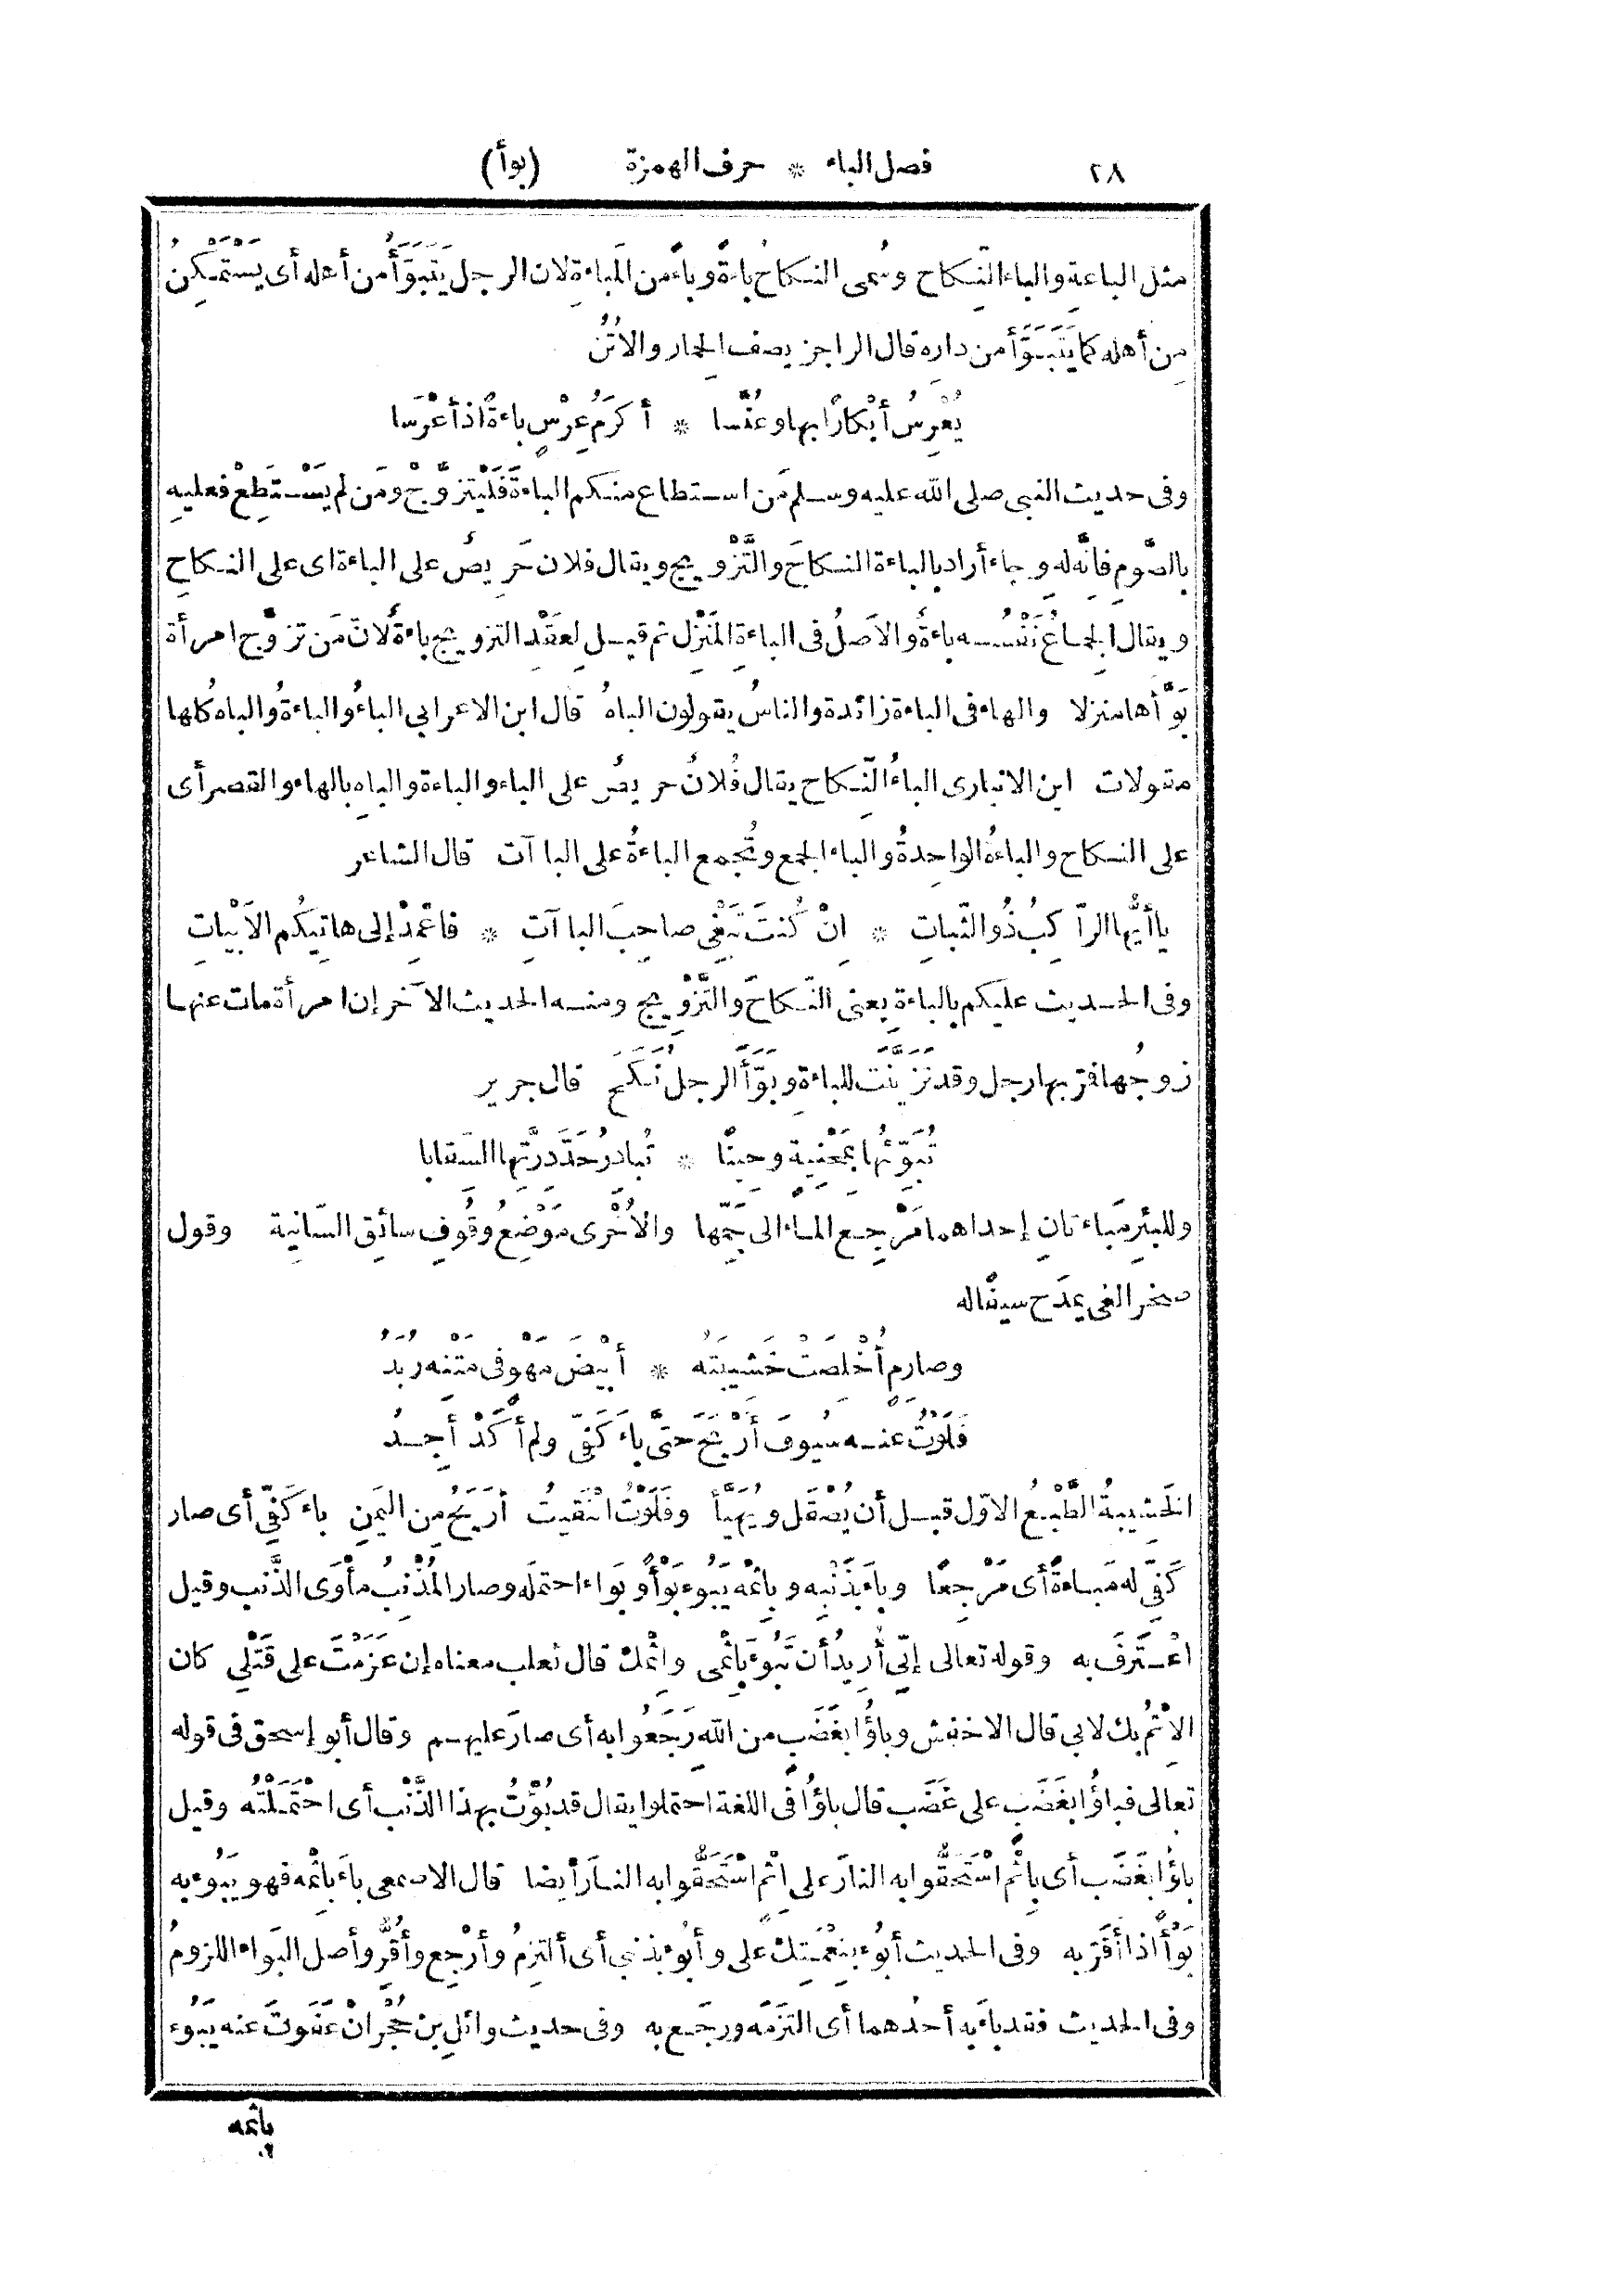 ٢٨ فصل الباء * حرف الهمزة (بوأ)
مثل الباعة والباء النِّكاح وسُمى النكاحُ باءةً وباءً من المَباءةِ لان الرجل يَتَبَوَّأُ من أهله أى يَسْتَمْكِنُ
مِن أهله كما يَتَبَوَّأُ من دارِه قال الراجز يصف الحِمار والاُتُنَ
يُعْرِسُ أبْكارًا بها وعُنَّسا * أكرَمُ عِرْسٍ باءةً اذ أعْرَسَا
وفى حديث النبى صلى الله عليه وسلم مَن استطاع منكم الباءةَ فَلْيَتزوَّجْ ومَن لم يَسْتَطِعْ فعليهِ
بالصَّومِ فانَّه له وِجاء أراد بالباءة النكاحَ والتَّزْويج ويقال فلان حَرِيصٌ على الباءة اى على النكاحِ
ويقال الجِماعُ نَفْسُه باءةٌ والاَصلُ فى الباءةِ المَنْزِل ثم قيل لِعَقْدِ التزويج باءةٌ لانّ مَن تزوَّج امرأة
بَوَّأها منزلا والهاء فى الباءة زائدة والناسُ يقولون الباهُ قال ابن الاعرابى الباءُ والباءةُ والباه كُلها
مقولات ابن الانبارى الباءُ النِّكاح يقال فُلانٌ حريصٌ على الباء والباءة والباهِ بالهاء والقصر أى
على النكاح والباءةُ الواحِدةُ والباء الجمع وتُجمع الباءةُ على الباآت قال الشاعر
يا أيُّها الرّاكِبُ ذُو الثَّباتِ * اِنْ كُنتَ تَبْغِى صاحِبَ الباآتِ * فاعْمِدْ إلى هاتِيكُم الاَبْياتِ
وفى الحديث عليكم بالباءةِ يعنى النّكاحَ والتَّزْوِيج ومنه الحديث الآخر إن امرأة مات عنها
زوجُها فمرّ بها رجل وقد تَزَيَّنَت للباءةِ وبَوَّأَ الرجلُ نَكَحَ قال جرير
تُبَوِّئُها بِمَحْنِيةٍ وحِينًا * تُبادِرُ حَدَّ دِرَّتِها السِّقابا
وللبِئرِ مَباءَتانِ إحداهما مَرْجِع الماء الى جَمِّها والاُخْرى مَوْضِعُ وقُوفِ سائِقِ السّانِية وقول
صخر الغى يمدَح سيفًا له
وصارِمٍ أُخْلِصَتْ خَشِيبَتُه * أبْيَضَ مَهْوٍ فى مَتْنِه رُبَدُ
فَلَوْتُ عنه سُيوفَ أَرْيَحَ حَتَّى باءَ كَفِّى ولم أَكَدْ أَجِدُ
الخَشِيبةُ الطَّبْعُ الاوّل قبل أن يُصْقَل ويُهَيَّأَ وفَلَوْتُ انْتَقَيتُ أرْيَحُ مِن اليَمنِ باءَ كَفِّى أى صار
كَفِّى له مَباءةً أى مَرْجِعًا وباءَ بذَنْبِه وبإثمْه يَبُوء بَوْأً وبَواء احتمَله وصار المُذْنِبُ مأْوَى الذَّنب وقيل
اعْتَرفَ به وقوله تعالى إنّى أُرِيدُ أن تَبُوءَ بإثْمى واِثْمِكَ قال ثعلب معناه إن عَزَمْتَ على قَتْلِى كان
الاِثْمُ بك لا بى قال الاخفش وباؤُا بغَضَبٍ من الله رَجَعُوا به أى صارَ عليهم وقال أبو إسحق فى قوله
تعالى فباؤُا بغَضَبٍ على غَضَبٍ قال باؤُا فى اللغة احتملوا يقال قد بُؤْتُ بهذا الذَّنْب أى احْتَمَلْتُه وقيل
باؤُا بغَضَبٍ أى بإثْمٍ اسْتَحَقُّوا به النارَ على اِثْمٍ اسْتَحَقُّوا به النارَ أيضا قال الاصمعى باءَ بإثْمِه فهو يَبُوء به
بَوْأً اذا أقَرَّ به وفى الحديث أبُوء بنِعْمَتِكَ على وأبُوء بذنبى أى ألتزِمُ وأرْجِع وأُقِرُّ وأصل البَواء اللزومُ
وفى الحديث فقد باءَ به أحدُهما أى التزَمَه ورجَع به وفى حديث وائلِ بن حُجْرٍ انْ عَفَوتَ عنه يَبُوء
بإثمه